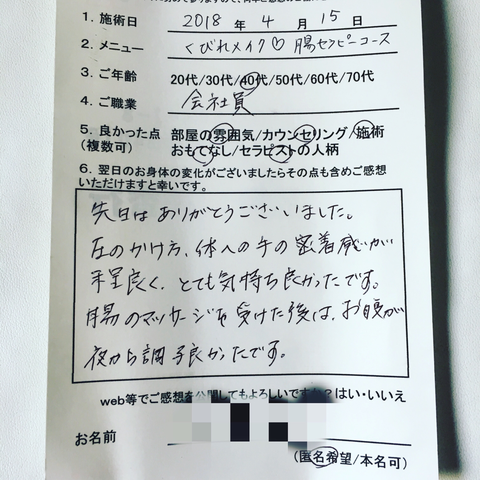 1. 施術日 2018 年 4 月 15 日
2. メニュー くびれメイク♡腸セラピーコース
3. ご年齢 20代/30代/40代/50代/60代/70代
4. ご職業 会社員
5. 良かった点 部屋の雰囲気/カウンセリング/施術
(複数可) おもてなし/セラピストの人柄
6. 翌日のお身体の変化がございましたらその点も含めご感想
いただけますと幸いです。
先日はありがとうございました。
圧のかけ方、体への手の密着感が
程良く、とても気持ち良かったです。
腸のマッサージを受けた後は、お腹が
夜から調子良かったです。
web等でご感想を公開してもよろしいですか?はい・いいえ
お名前
(匿名希望/本名可)